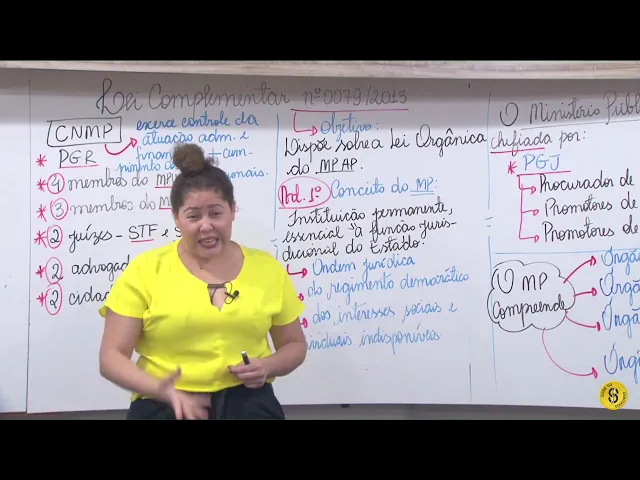 Lei Complementar nº0079/2013
CNMP
exerce controle da
atuação adm. e
* PGR
* 4 membros do
* 3 membros do
* 2 juízes - STF e
* 2
* 2
Objetivo:
Dispõe sobre a Lei Orgânica
do MPAP.
Art. 1º Conceito do MP:
Instituição permanente,
essencial à função juris-
dicional do Estado:
Ordem jurídica
do regimento democrático
dos interesses sociais e
indisponíveis.
O Ministério
chefiada por:
* PGJ
Procurador de
Promotores de
Promotores de
O MP
Compreende